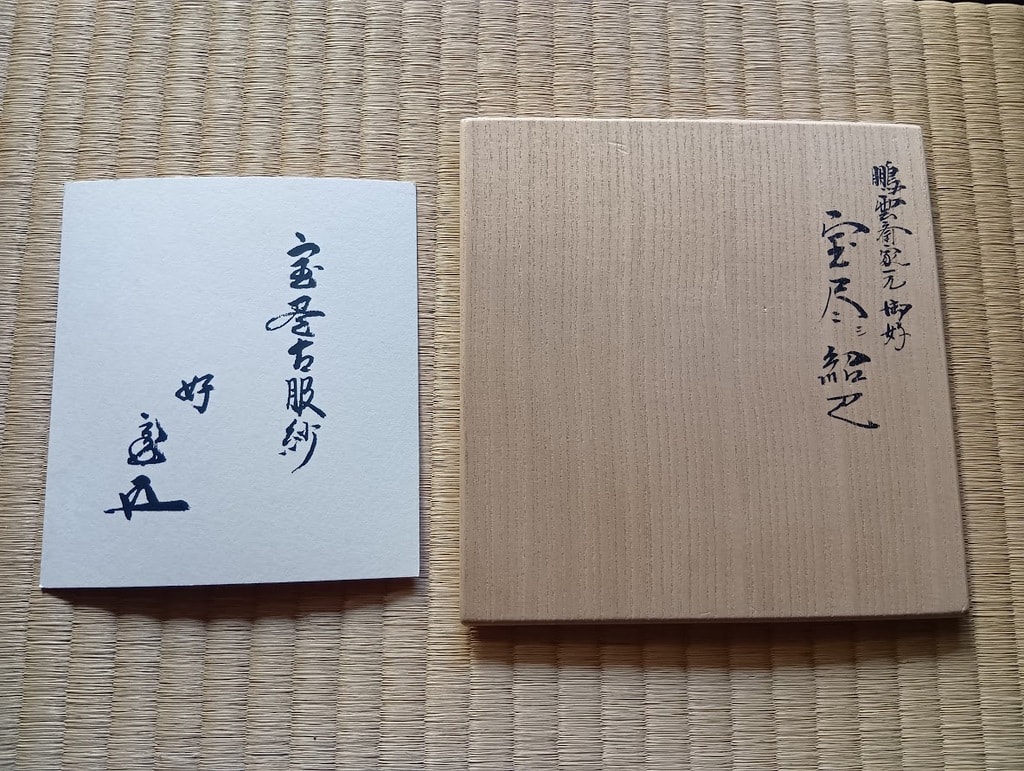 鵬雲斎家元 御好
宝尽シ 紹巴
宝尽古服紗
好